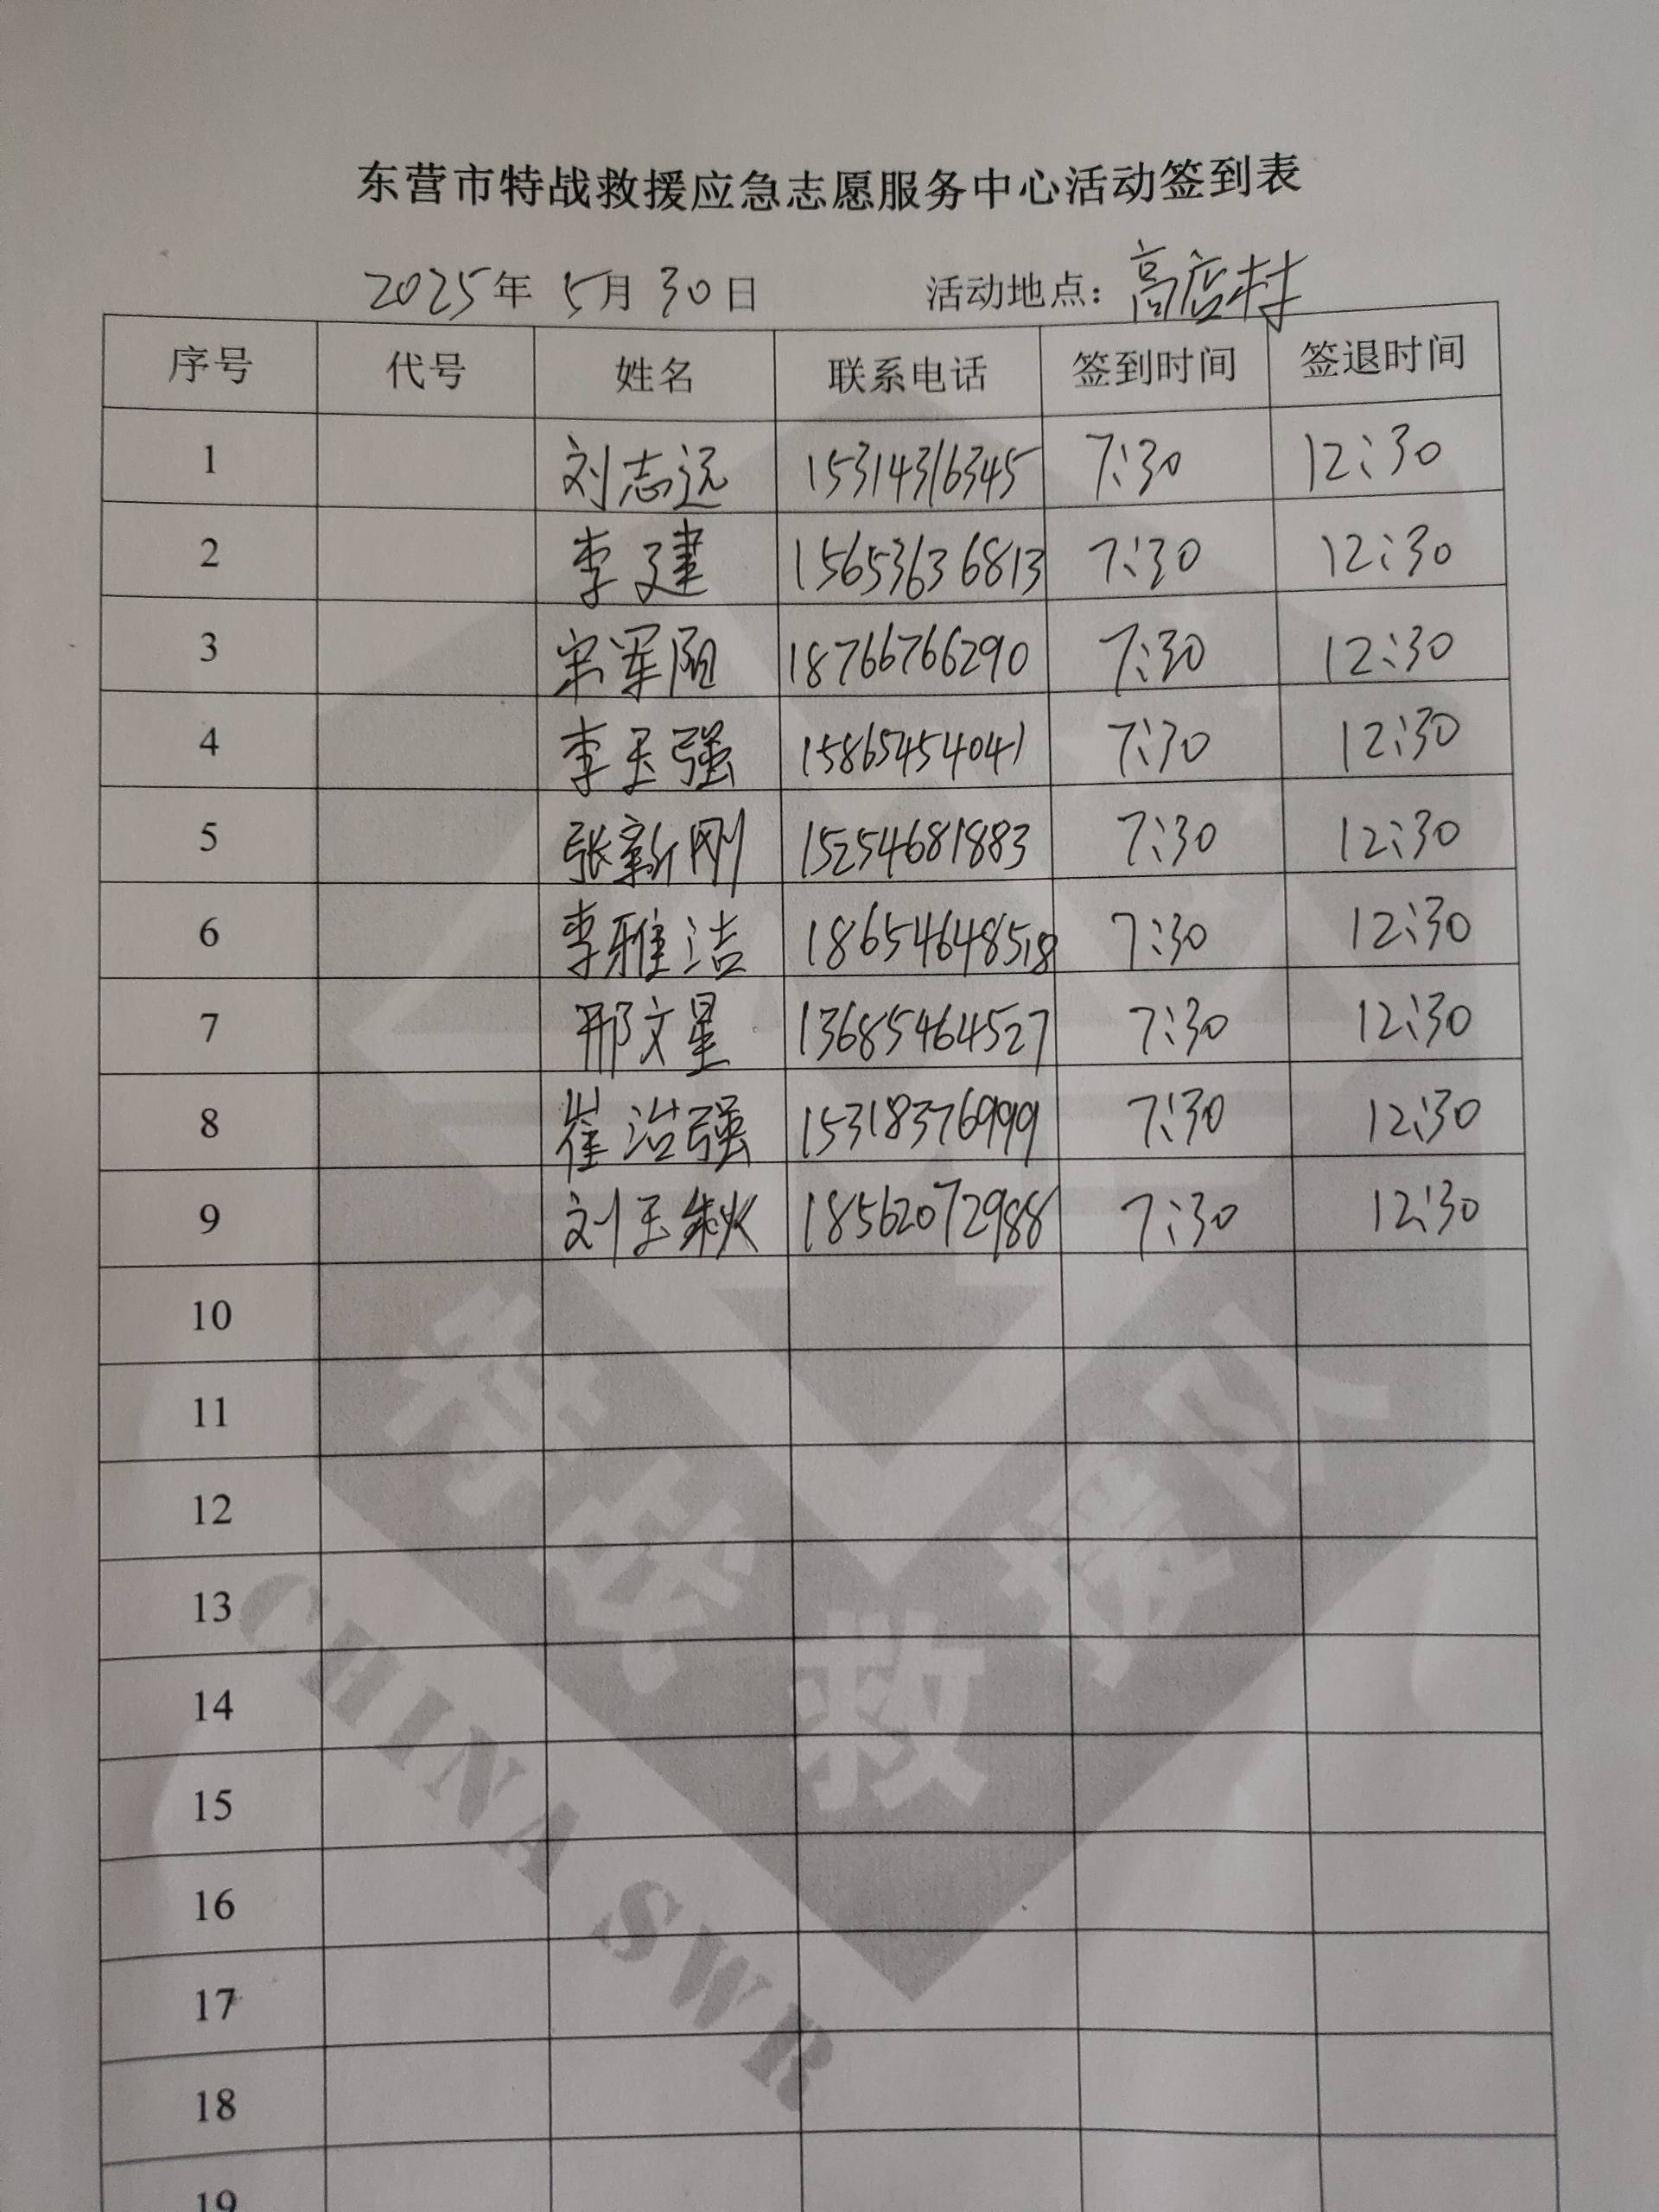 东营市特战救援应急志愿服务中心活动签到表
2025年 5月 30日 活动地点：高店村
序号 代号 姓名 联系电话 签到时间 签退时间
1 刘志远 15314316345 7:30 12:30
2 李建 15653636813 7:30 12:30
3 宋军阳 18766766290 7:30 12:30
4 李玉强 15865454041 7:30 12:30
5 张新刚 15254681883 7:30 12:30
6 李雅洁 18654648518 7:30 12:30
7 邢文星 13685464527 7:30 12:30
8 崔治强 15318376999 7:30 12:30
9 刘玉秋 18562072988 7:30 12:30
10
11
12
13
14
15
16
17
18
19
特战救援队
CHINA SWR